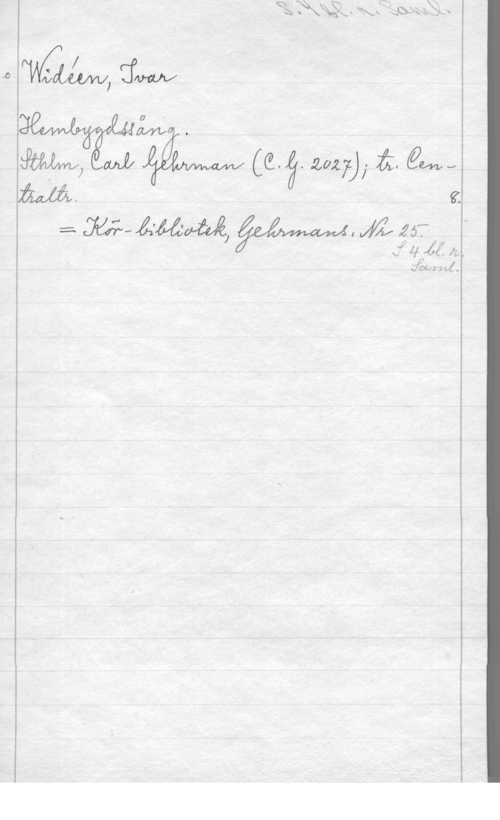 Widéen, Ivar
Hembygdssång.
Sthlm, Carl Gehrman (C. G. 2027); tr. Cen-
traltr. 8.
= Kör-bibliotek, Gehrmans, Nr 25.
S 4 bl. n.
Saml.